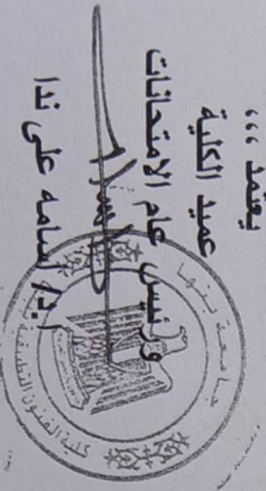 يعتمد ،،،
عميد الكلية
ورئيس عام الامتحانات
أ.د/ أسامه على ندا
جامعة بنها
كلية الفنون التطبيقية